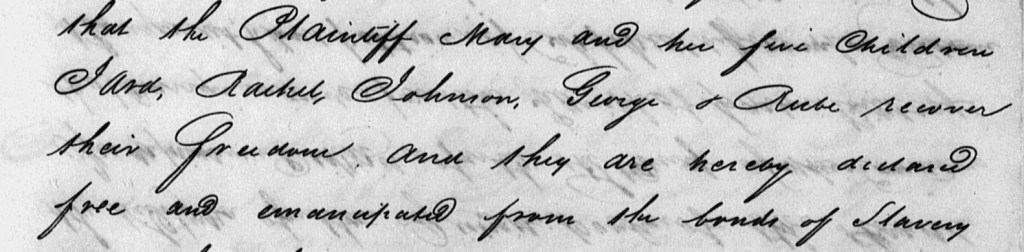 that the Plaintiff Mary and her five Children
Idra, Rachel, Johnson, George & Rube recover
their freedom. and they are hereby declared
free and emancipated from the bonds of Slavery